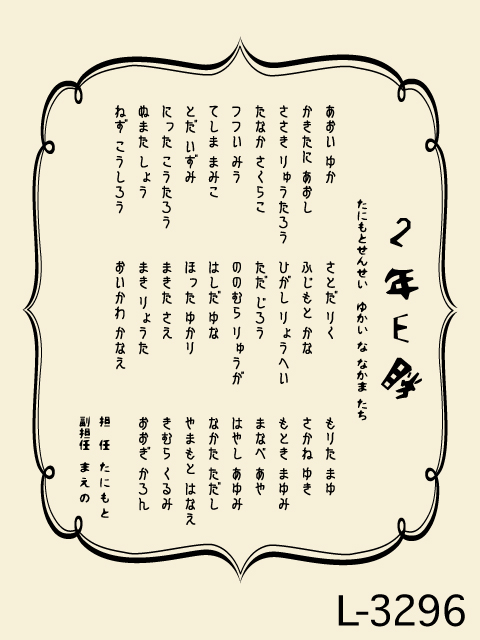 2年E勝
たにもとせんせい ゆかい な なかま たち
あおい ゆか
かきたに あおし
ささき りゅうたろう
たなか さくらこ
つつい みう
てしま まみこ
とだ いずみ
にった こうたろう
ぬまた しょう
ねず こうしろう
さとだ りく
ふじもと かな
ひがし りょうへい
ただ じろう
ののむら りゅうが
はしだ ゆな
ほった ゆかり
まきた さえ
まき りょうた
おいかわ かなえ
もりた まゆ
さかね ゆき
もとき まゆみ
まなべ あや
はやし あゆみ
なかた ただし
やまもと はなえ
きむら くるみ
おおぎ かろん
担 任 たにもと
副担任 まえの
L-3296